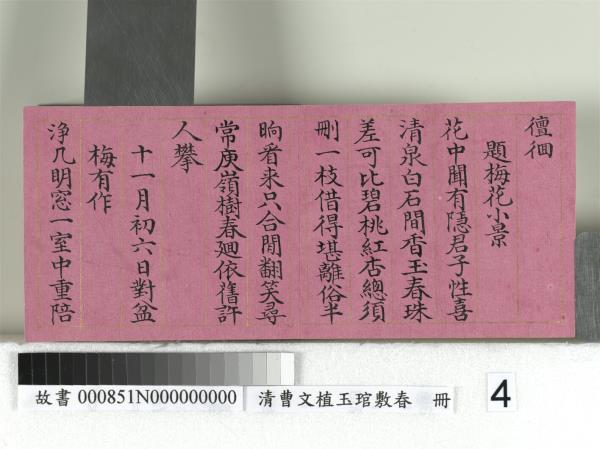 儃佪
題梅花小景
花中聞有隱君子性喜
清泉白石間香玉春珠
差可比碧桃紅杏總須
刪一枝借得堪離俗半
晌看来只合閒翻笑尋
常庾嶺樹春廻依舊許
人攀
十一月初六日對盆
梅有作
淨几明窓一室中重陪
故書 000851N000000000 清曹文植玉琯敷春 冊 4